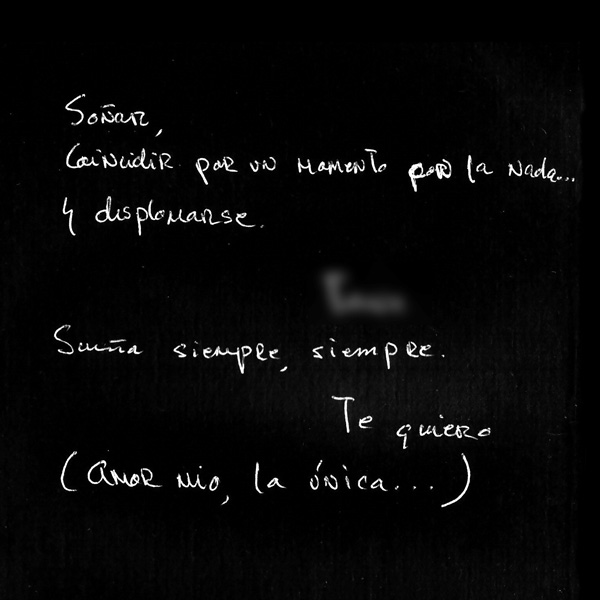 Soñar,
Coincidir por un momento por la nada...
y desplomarse.
Sueña siempre, siempre.
Te quiero
(Amor mio, la única...)